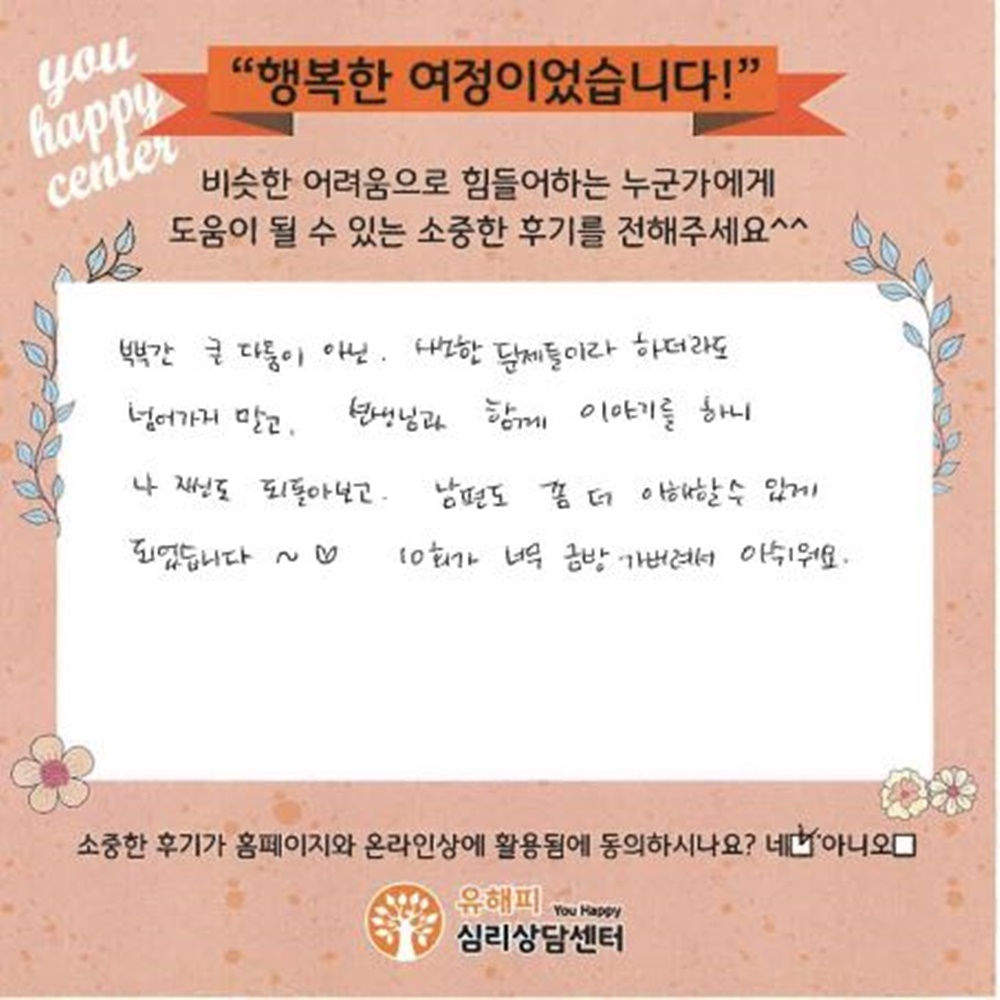 you
happy
center
“행복한 여정이었습니다!”
비슷한 어려움으로 힘들어하는 누군가에게
도움이 될 수 있는 소중한 후기를 전해주세요^^
부부간 큰 다툼이 아닌. 사소한 문제들이라 하더라도
넘어가지 말고, 선생님과 함께 이야기를 하니
나 자신도 되돌아보고. 남편도 좀 더 이해할 수 있게
되었습니다 ~ ♡ 10회가 너무 금방 가버려서 아쉬워요.
소중한 후기가 홈페이지와 온라인상에 활용됨에 동의하시나요? 네☑ 아니오☐
유해피 You Happy
심리상담센터